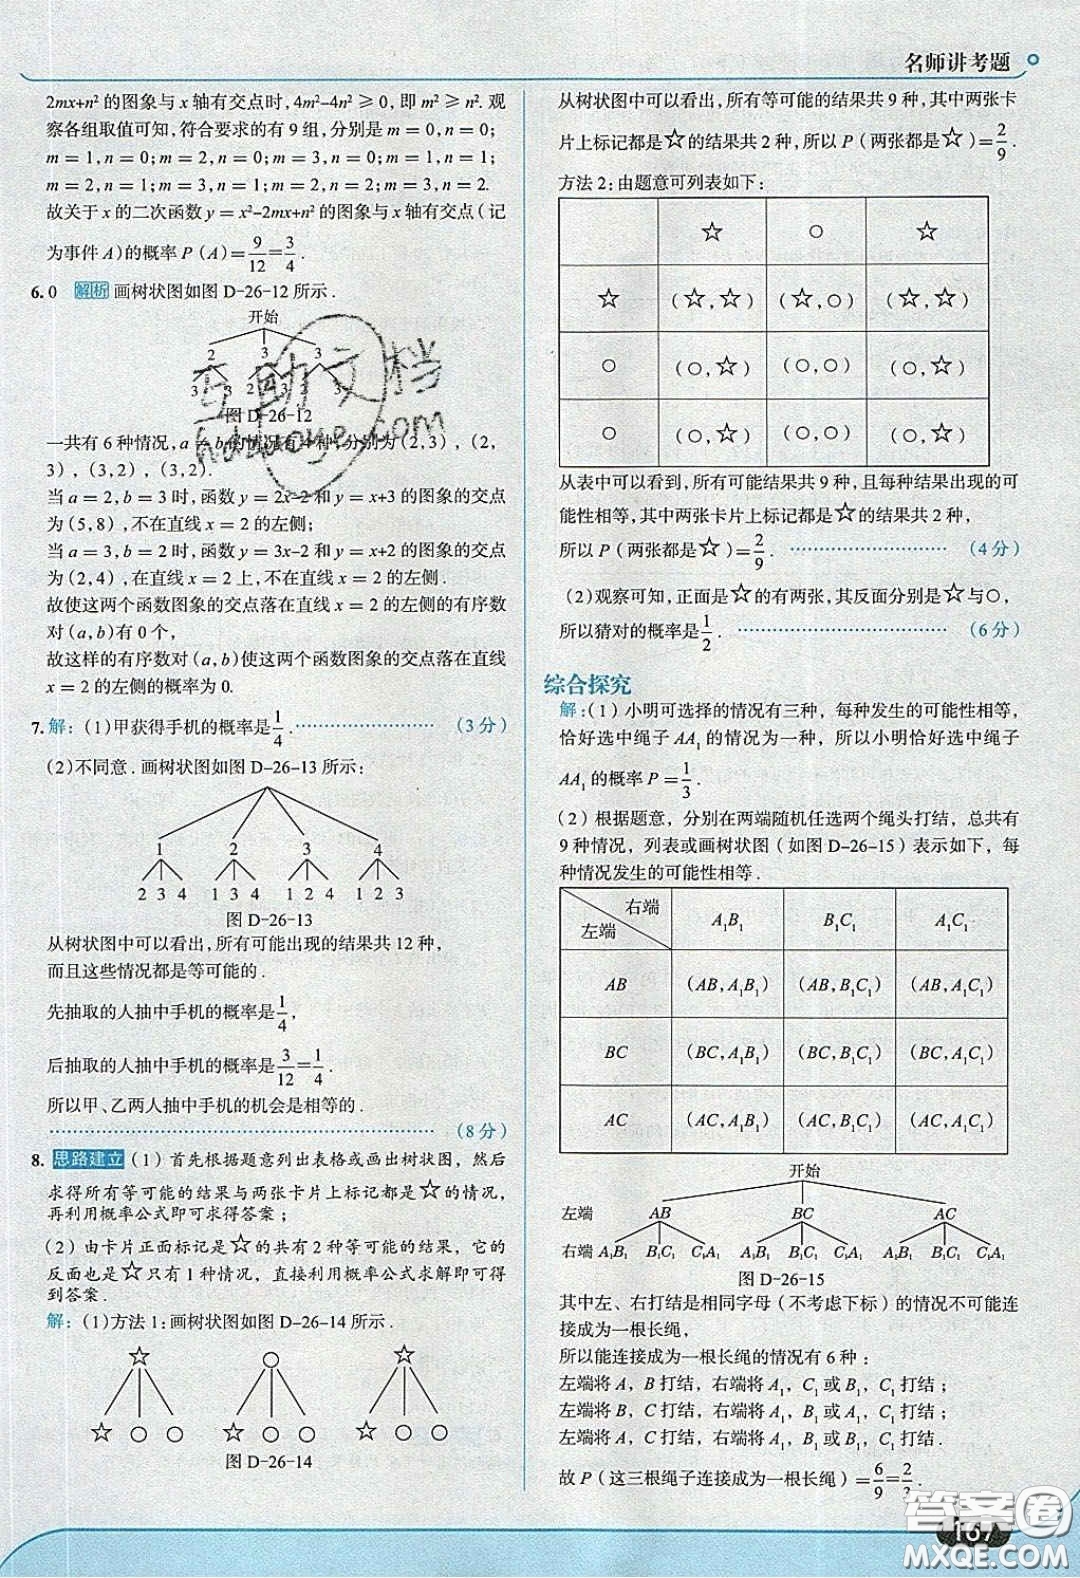 名师讲考题
2mx+n²的图象与x轴有交点时,4m²-4n²≥0,即m²≥n².观
察各组取值可知,符合要求的有9组,分别是m=0,n=0;
m=1,n=0;m=2,n=0;m=3,n=0;m=1,n=1;
m=2,n=1;m=3,n=1;m=2,n=2;m=3,n=2.
故关于x的二次函数y=x²-2mx+n²的图象与x轴有交点(记
为事件A)的概率P(A)=9/12=3/4.
6.0 解析 画树状图如图D-26-12所示.
开始
2 3 3
3 3 2 3 2 3
图D-26-12
一共有6种情况,a≠b的情况有4种,分别为(2,3),(2,
3),(3,2),(3,2).
当a=2,b=3时,函数y=2x-2和y=x+3的图象的交点
为(5,8),不在直线x=2的左侧;
当a=3,b=2时,函数y=3x-2和y=x+2的图象的交点
为(2,4),在直线x=2上,不在直线x=2的左侧.
故使这两个函数图象的交点落在直线x=2的左侧的有序数
对(a,b)有0个,
故这样的有序数对(a,b)使这两个函数图象的交点落在直线
x=2的左侧的概率为0.
7.解:(1)甲获得手机的概率是1/4.……(3分)
(2)不同意.画树状图如图D-26-13所示:
1 2 3 4
2 3 4 1 3 4 1 2 4 1 2 3
图D-26-13
从树状图中可以看出,所有可能出现的结果共12种,
而且这些情况都是等可能的.
先抽取的人抽中手机的概率是1/4,
后抽取的人抽中手机的概率是3/12=1/4.
所以甲、乙两人抽中手机的机会是相等的.
……(8分)
8. 思路建立 (1)首先根据题意列出表格或画出树状图,然后
求得所有等可能的结果与两张卡片上标记都是☆的情况,
再利用概率公式即可求得答案;
(2)由卡片正面标记是☆的共有2种等可能的结果,它的
反面也是☆只有1种情况,直接利用概率公式求解即可得
到答案.
解:(1)方法1:画树状图如图D-26-14所示.
☆ ○ ☆
☆ ○ ○ ☆ ○ ○ ☆ ○ ○
图D-26-14
从树状图中可以看出,所有等可能的结果共9种,其中两张卡
片上标记都是☆的结果共2种,所以P(两张都是☆)=2/9.
方法2:由题意可列表如下:
☆ ○ ☆
☆ (☆,☆) (☆,○) (☆,☆)
○ (○,☆) (○,○) (○,☆)
○ (○,☆) (○,○) (○,☆)
从表中可以看到,所有可能结果共9种,且每种结果出现的可
能性相等,其中两张卡片上标记都是☆的结果共2种,
所以P(两张都是☆)=2/9.……(4分)
(2)观察可知,正面是☆的有两张,其反面分别是☆与○,
所以猜对的概率是1/2.……(6分)
综合探究
解:(1)小明可选择的情况有三种,每种发生的可能性相等,
恰好选中绳子AA₁的情况为一种,所以小明恰好选中绳子
AA₁的概率P=1/3.
(2)根据题意,分别在两端随机任选两个绳头打结,总共有
9种情况,列表或画树状图(如图D-26-15)表示如下,每
种情况发生的可能性相等.
右端
左端 A₁B₁ B₁C₁ A₁C₁
AB (AB,A₁B₁) (AB,B₁C₁) (AB,A₁C₁)
BC (BC,A₁B₁) (BC,B₁C₁) (BC,A₁C₁)
AC (AC,A₁B₁) (AC,B₁C₁) (AC,A₁C₁)
开始
左端 AB BC AC
右端 A₁B₁ B₁C₁ C₁A₁ A₁B₁ B₁C₁ C₁A₁ A₁B₁ B₁C₁ C₁A₁
图D-26-15
其中左、右打结是相同字母(不考虑下标)的情况不可能
连接成为一根长绳,
所以能连接成为一根长绳的情况有6种:
左端将A,B打结,右端将A₁,C₁或B₁,C₁打结;
左端将B,C打结,右端将A₁,B₁或A₁,C₁打结;
左端将A,C打结,右端将A₁,B₁或B₁,C₁打结.
故P(这三根绳子连接成为一根长绳)=6/9=2/3.
167
互助文档
hdzuoye.com
答案圈
MXQE.COM